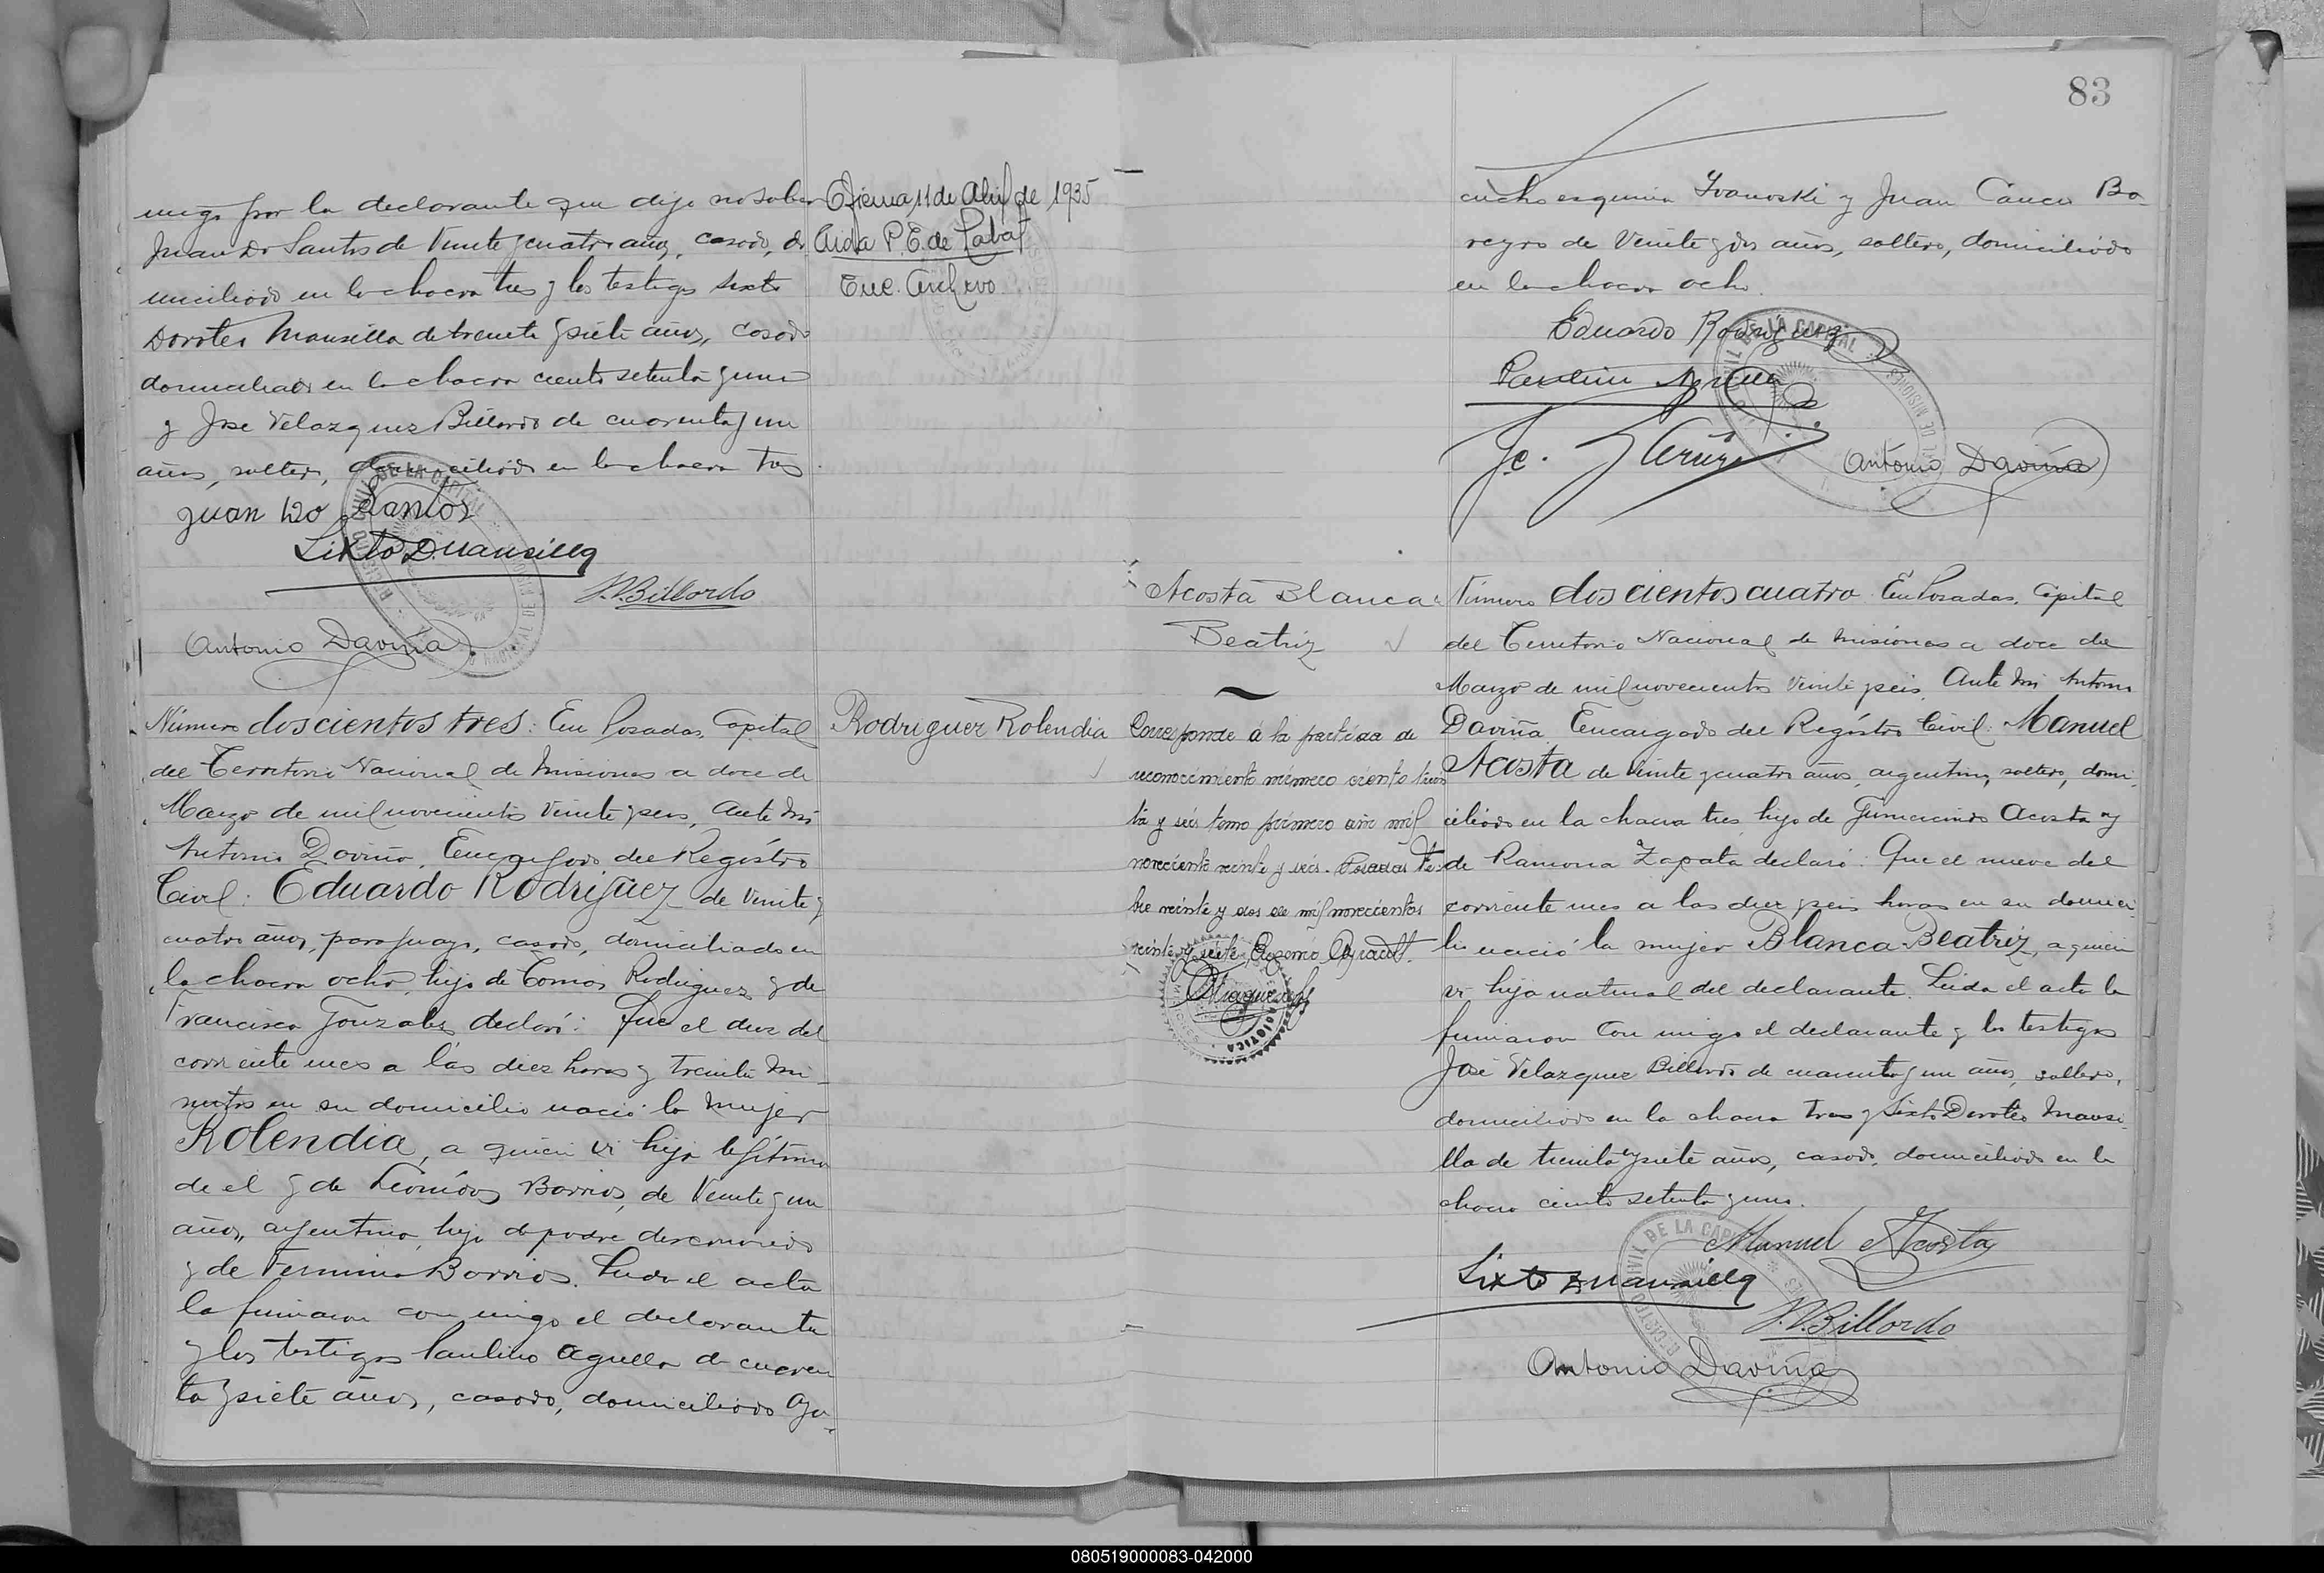 migo por la declarante que dijo no saber
Juan Do Santos de veinte y cuatro años, casado, do
miciliado en la chacra tres y los testigos Sixto
Doroteo Mansilla de treinta y siete años, casado
domiciliado en la chacra ciento setenta y uno
y José Velazquez Billordo de cuarenta y un
años, soltero, domiciliado en la chacra tres
Juan Do Santos
Sixto D. Mansilla
J. V. Billordo
Antonio Daviña
11 de Abril de 1935
Aida P. E. de Labat
Enc. Archivo
Número doscientos tres: En Posadas, Capital
del Territorio Nacional de Misiones a doce de
Marzo de mil novecientos veinte y seis, Ante mi
Antonio Daviña, Encargado del Registro
Civil: Eduardo Rodriguez de veinte y
cuatro años, paraguayo, casado, domiciliado en
la chacra ocho, hijo de Tomas Rodriguez y de
Francisca Gonzalez declaró: Que el diez del
corriente mes a las diez horas y treinta mi-
nutos en su domicilio nació la mujer
Rolendia, a quien vi hija legítima
de el y de Leonidas Barrios, de veinte y un
años, argentina, hija de padre desconocido
y de Fermina Barrios. Leida el acta
la firmaron con migo el declarante
y los testigos Paulino Aguilla de cuaren
ta y siete años, casado, domiciliado Aya-
Rodriguez Rolendia
83
cucho esquina Ivanoski y Juan Bo-
reyro de veinte y dos años, soltero, domiciliado
en la chacra ocho.
Eduardo Rodriguez
Antonio Daviña
Acosta Blanca
Beatriz
Corresponde á la partida de
reconocimiento número ciento trein
ta y seis tomo primero año mil
novecientos veinte y seis. Posadas
bre veinte y dos de mil novecientos
veinte y siete
Número doscientos cuatro. En Posadas, Capital
del Territorio Nacional de Misiones a doce de
Marzo de mil novecientos veinte y seis. Ante mi Antonio
Daviña Encargado del Registro Civil: Manuel
Acosta de veinte y cuatro años, argentino, soltero, domi-
ciliado en la chacra tres, hijo de Gumercindo Acosta y
de Ramona Zapata declaró: Que el nueve del
corriente mes a las diez y seis horas en su domici-
lio nació la mujer Blanca Beatriz, a quien
vi hija natural del declarante. Leida el acta la
firmaron con migo el declarante y los testigos
José Velazquez Billordo de cuarenta y un años, soltero,
domiciliado en la chacra tres y Sixto Doroteo Mansi-
lla de treinta y siete años, casado, domiciliado en la
chacra ciento setenta y uno.
Manuel Acosta
Sixto Mansilla
J. V. Billordo
Antonio Daviña
080519000083-042000